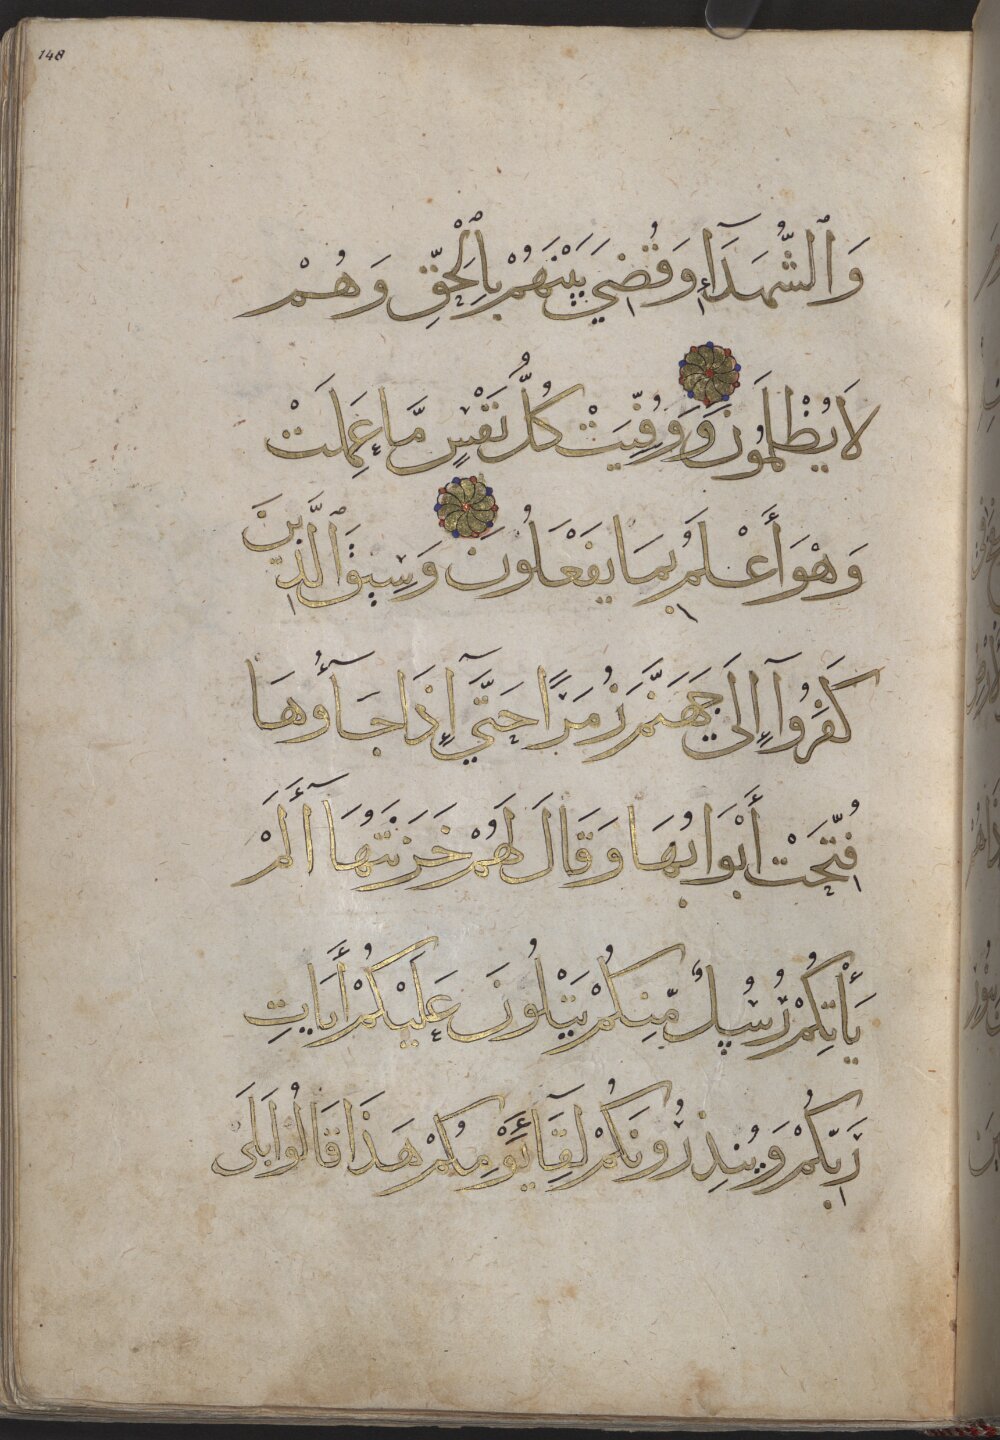 148
وَٱلشُّهَدَآءِ وَقُضِيَ بَيْنَهُمْ بِٱلْحَقِّ وَهُمْ
لَا يُظْلَمُونَ وَوُفِّيَتْ كُلُّ نَفْسٍ مَّا عَمِلَتْ
وَهْوَ أَعْلَمُ بِمَا يَفْعَلُونَ وَسِيقَ ٱلَّذِينَ
كَفَرُوٓا إِلَىٰ جَهَنَّمَ زُمَرًا حَتَّىٰٓ إِذَا جَآءُوهَا
فُتِّحَتْ أَبْوَابُهَا وَقَالَ لَهُمْ خَزَنَتُهَآ أَلَمْ
يَأْتِكُمْ رُسُلٌ مِّنكُمْ يَتْلُونَ عَلَيْكُمْ أَيَاتِ
رَبِّكُمْ وَيُنذِرُونَكُمْ لِقَآءَ يَوْمِكُمْ هَذَا قَالُوا بَلَىٰ